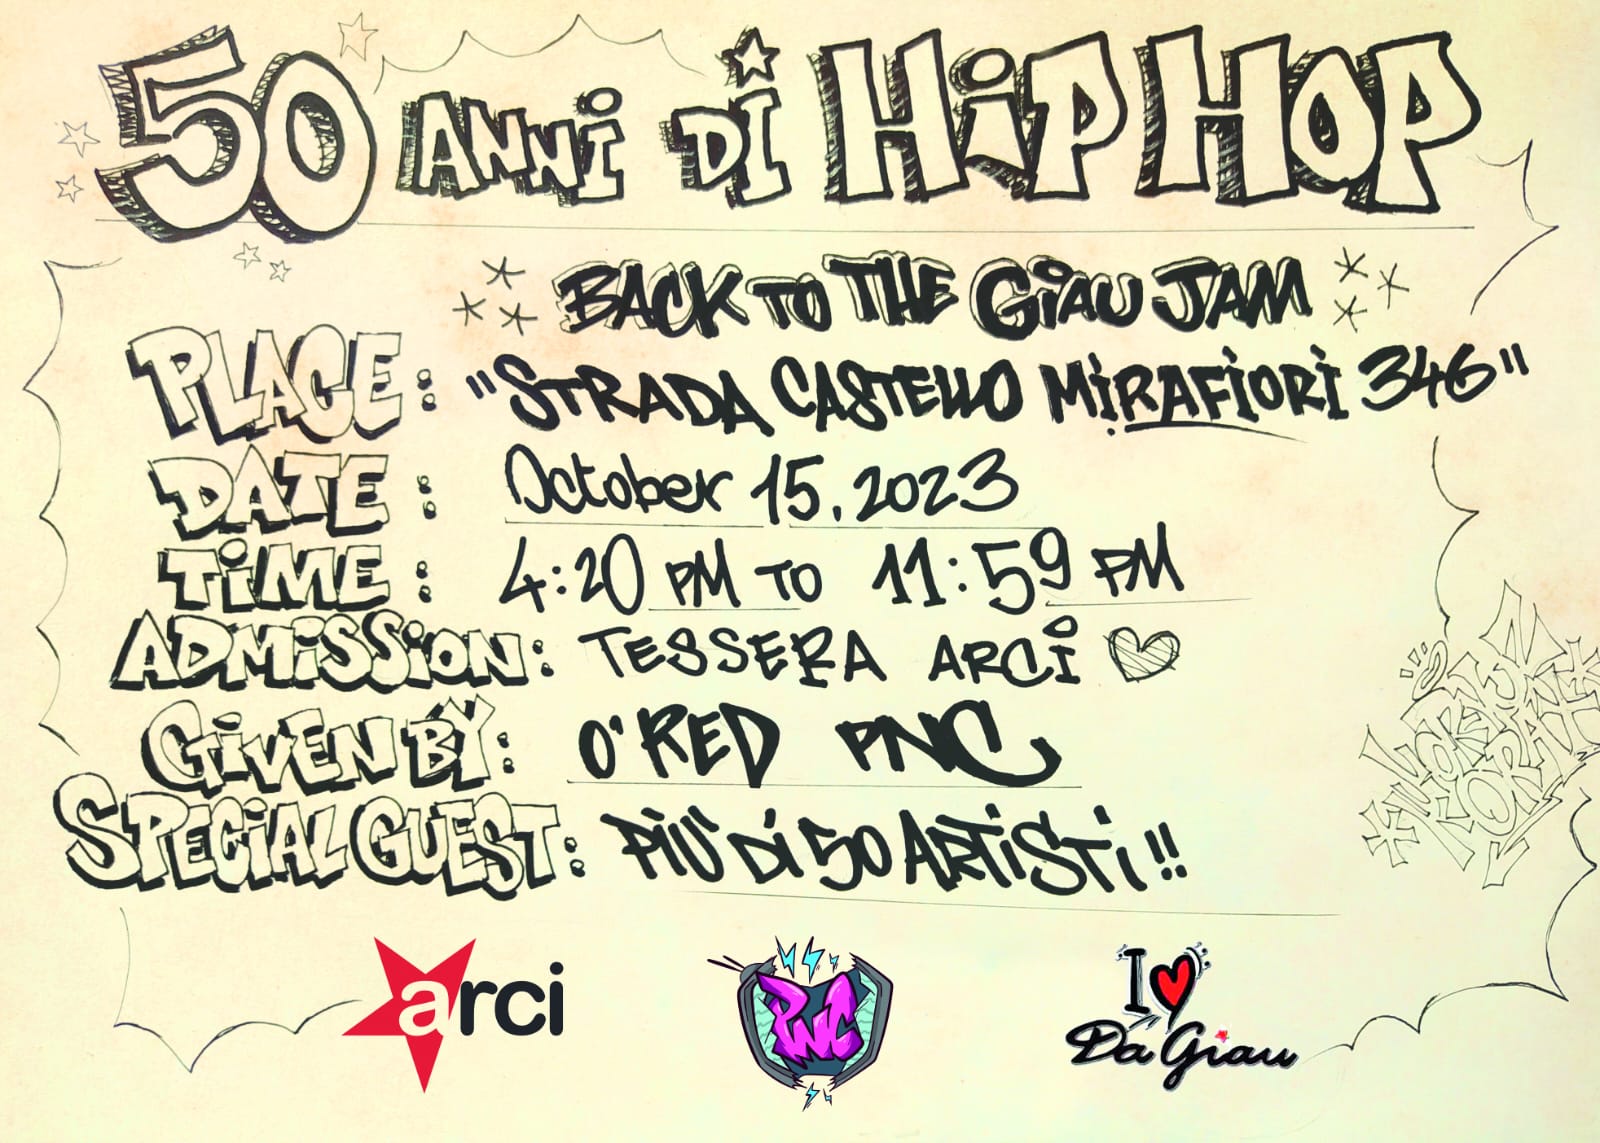 50 ANNI DI HIP HOP
BACK TO THE GIAU JAM
PLACE: "STRADA CASTELLO MIRAFIORI 346"
DATE: October 15, 2023
TIME: 4:20 PM TO 11:59 PM
ADMISSION: TESSERA ARCI
GIVEN BY: O'RED PNC
SPECIAL GUEST: PIÙ DI 50 ARTISTI!!
arci
PNC
I
Da Giau